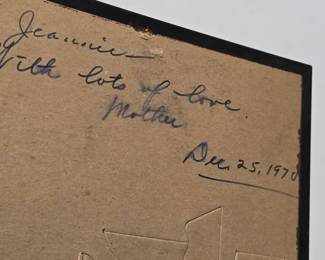 Jeannie—
With lots of love.
Mother
Dec. 25, 1970